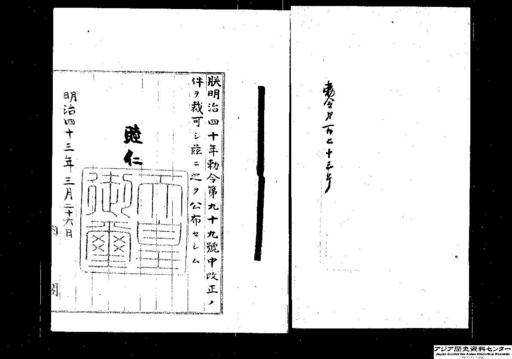 勅令第百七十三号
朕明治四十年勅令第九十九號中改正ノ
件ヲ裁可シ玆ニ之ヲ公布セシム
睦仁
天皇
御璽
明治四十三年三月二十六日
内閣
アジア歴史資料センター
Japan Center for Asian Historical Records